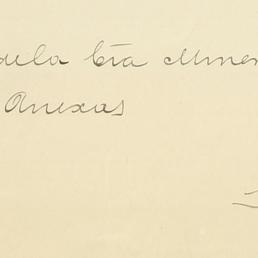 dela Cía Miner
Anexas